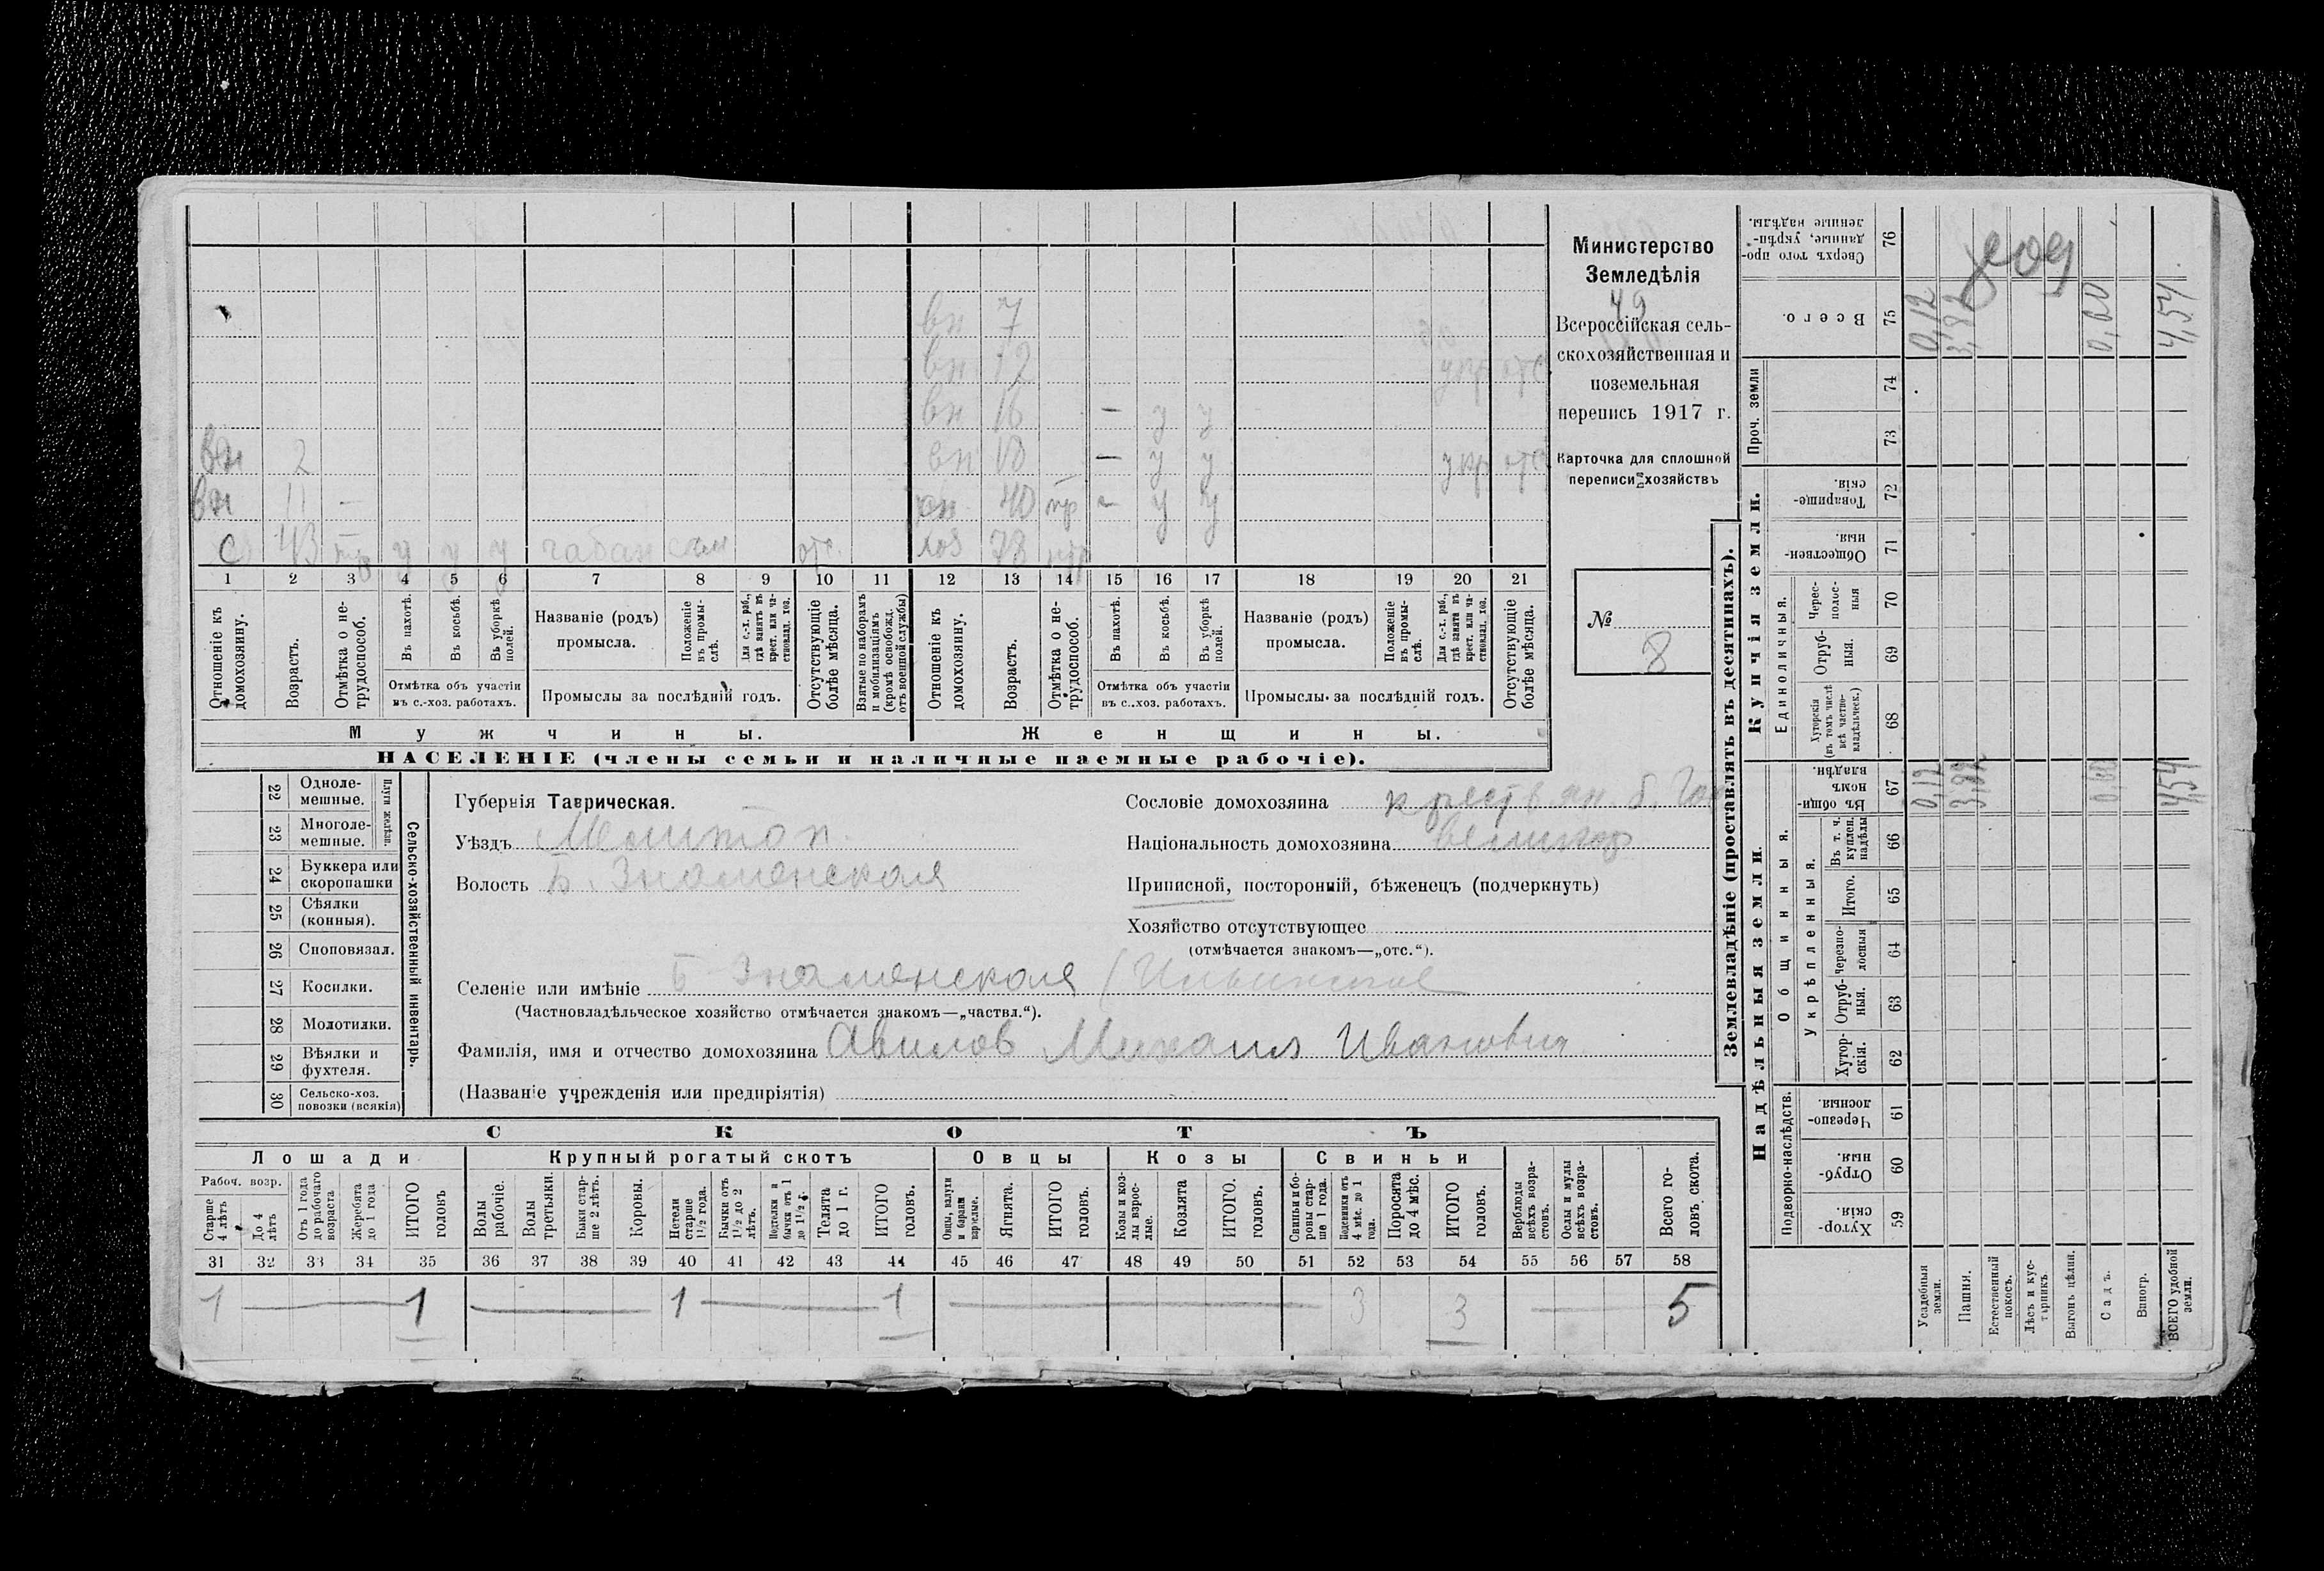 вн 7
вн 12 укр отс
вн 16 — у у
вн 2
вн 18 — у у укр отс
вн 11 —
жн 40 тр — у у
с 43 у у у чабан отс.
78
1 2 3 4 5 6 7 8 9 10 11 12 13 14 15 16 17 18 19 20 21
Отношеніе къ домохозяину.
Возрастъ.
Отмѣтка о не-трудоспособ.
Въ пахотѣ.
Въ косьбѣ.
Въ уборкѣ полей.
Отмѣтка объ участіи въ с.-хоз. работахъ.
Названіе (родъ) промысла.
Положеніе въ промы-слѣ.
Для с.-х. раб., гдѣ занятъ въ крест. или ча-стновлад. хоз.
Промыслы за послѣдній годъ.
Отсутствующіе болѣе мѣсяца.
Взятые по наборамъ и мобилизаціямъ (кромѣ освобожд. отъ военной службы)
Отношеніе къ домохозяину.
Возрастъ.
Отмѣтка о не-трудоспособ.
Въ пахотѣ.
Въ косьбѣ.
Въ уборкѣ полей.
Отмѣтка объ участіи въ с..хоз. работахъ.
Названіе (родъ) промысла.
Положеніе въ промы-слѣ.
Для с.-х. раб., гдѣ занята въ крест. или ча-стновлад. хоз.
Промыслы за послѣдній годъ.
Отсутствующіе болѣе мѣсяца.
Мужчины.
Женщины.
НАСЕЛЕНІЕ (члены семьи и наличные наемные рабочіе).
Министерство
Земледѣлія
49
Всероссійская сель-
скохозяйственная и
поземельная
перепись 1917 г.
Карточка для сплошной
переписи хозяйствъ
№
8
22 Одноле-мешные.
23 Многоле-мешные.
Плуги желѣзн.
24 Буккера или скоропашки
25 Сѣялки (конныя).
26 Сноповязал.
27 Косилки.
28 Молотилки.
29 Вѣялки и фухтеля.
30 Сельско-хоз. повозки (всякія)
Сельско-хозяйственный инвентарь.
Губернія Таврическая.
Уѣздъ Мелитоп.
Волость Б. Знаменская
Сословіе домохозяина крестьян. б. Гос
Національность домохозяина великор
Приписной, посторонній, бѣженецъ (подчеркнуть)
Хозяйство отсутствующее
(отмѣчается знакомъ—„отс.“).
Селеніе или имѣніе Б Знаменская (Ильинское
(Частновладѣльческое хозяйство отмѣчается знакомъ—„частвл.“).
Фамилія, имя и отчество домохозяина Авилов Михаил Иванович
(Названіе учрежденія или предпріятія)
СКОТЪ
Лошади
Крупный рогатый скотъ
Овцы
Козы
Свиньи
Рабоч. возр.
Старше 4 лѣтъ
До 4 лѣтъ
Отъ 1 года до рабочаго возраста
Жеребята до 1 года
ИТОГО головъ
Волы рабочіе.
Волы третьяки.
Быки стар-ше 2 лѣтъ.
Коровы.
Нетели старше 1½ года.
Бычки отъ 1½ до 2 лѣтъ.
Подтелки и бычки отъ 1 до 1½ г.
Телята до 1 г.
ИТОГО головъ.
Овцы, валухи и бараны взрослые.
Ягнята.
ИТОГО головъ.
Козы и коз-лы взрос-лые.
Козлята
ИТОГО. головъ.
Свиньи и бо-ровы стар-ше 1 года.
Подсвинки отъ 4 мѣс. до 1 года.
Поросята до 4 мѣс.
ИТОГО головъ.
Верблюды всѣхъ возра-стовъ.
Ослы и мулы всѣхъ возра-стовъ.
Всего го-ловъ скота.
31 32 33 34 35 36 37 38 39 40 41 42 43 44 45 46 47 48 49 50 51 52 53 54 55 56 57 58
1 — 1 — 1 — 1 — 3 3 — 5
Землевладѣніе (проставлять въ десятинахъ).
Купчія земли.
Надѣльныя земли.
Сверхъ того про-данные, укрѣп-ленные надѣлы. 76
Всего. 75
Проч. земли
74
73
Товарище-скія. 72
Обществен-ныя. 71
Единоличныя.
Черес-полос-ныя 70
Отруб-ныя. 69
Хуторскія (въ томъ числѣ всѣ частно-владѣльческ.) 68
Общинныя.
Въ общи-номъ владѣн. 67
Укрѣпленныя.
Въ т. ч. куплен. надѣлы 66
Итого. 65
Черезпо-лосныя 64
Отруб-ныя. 63
Хутор-скія. 62
Подворно-наслѣдств.
Черезпо-лосныя. 61
Отруб-ныя. 60
Хутор-скія. 59
Усадебныя земли. 0,12 0,12
Пашня. 3,82 3,82
Естественный покосъ.
Лѣсъ и кус-тарникъ.
Выгонъ цѣлин.
Садъ.
Виногр.
ВСЕГО удобной земли. 4,54 4,54